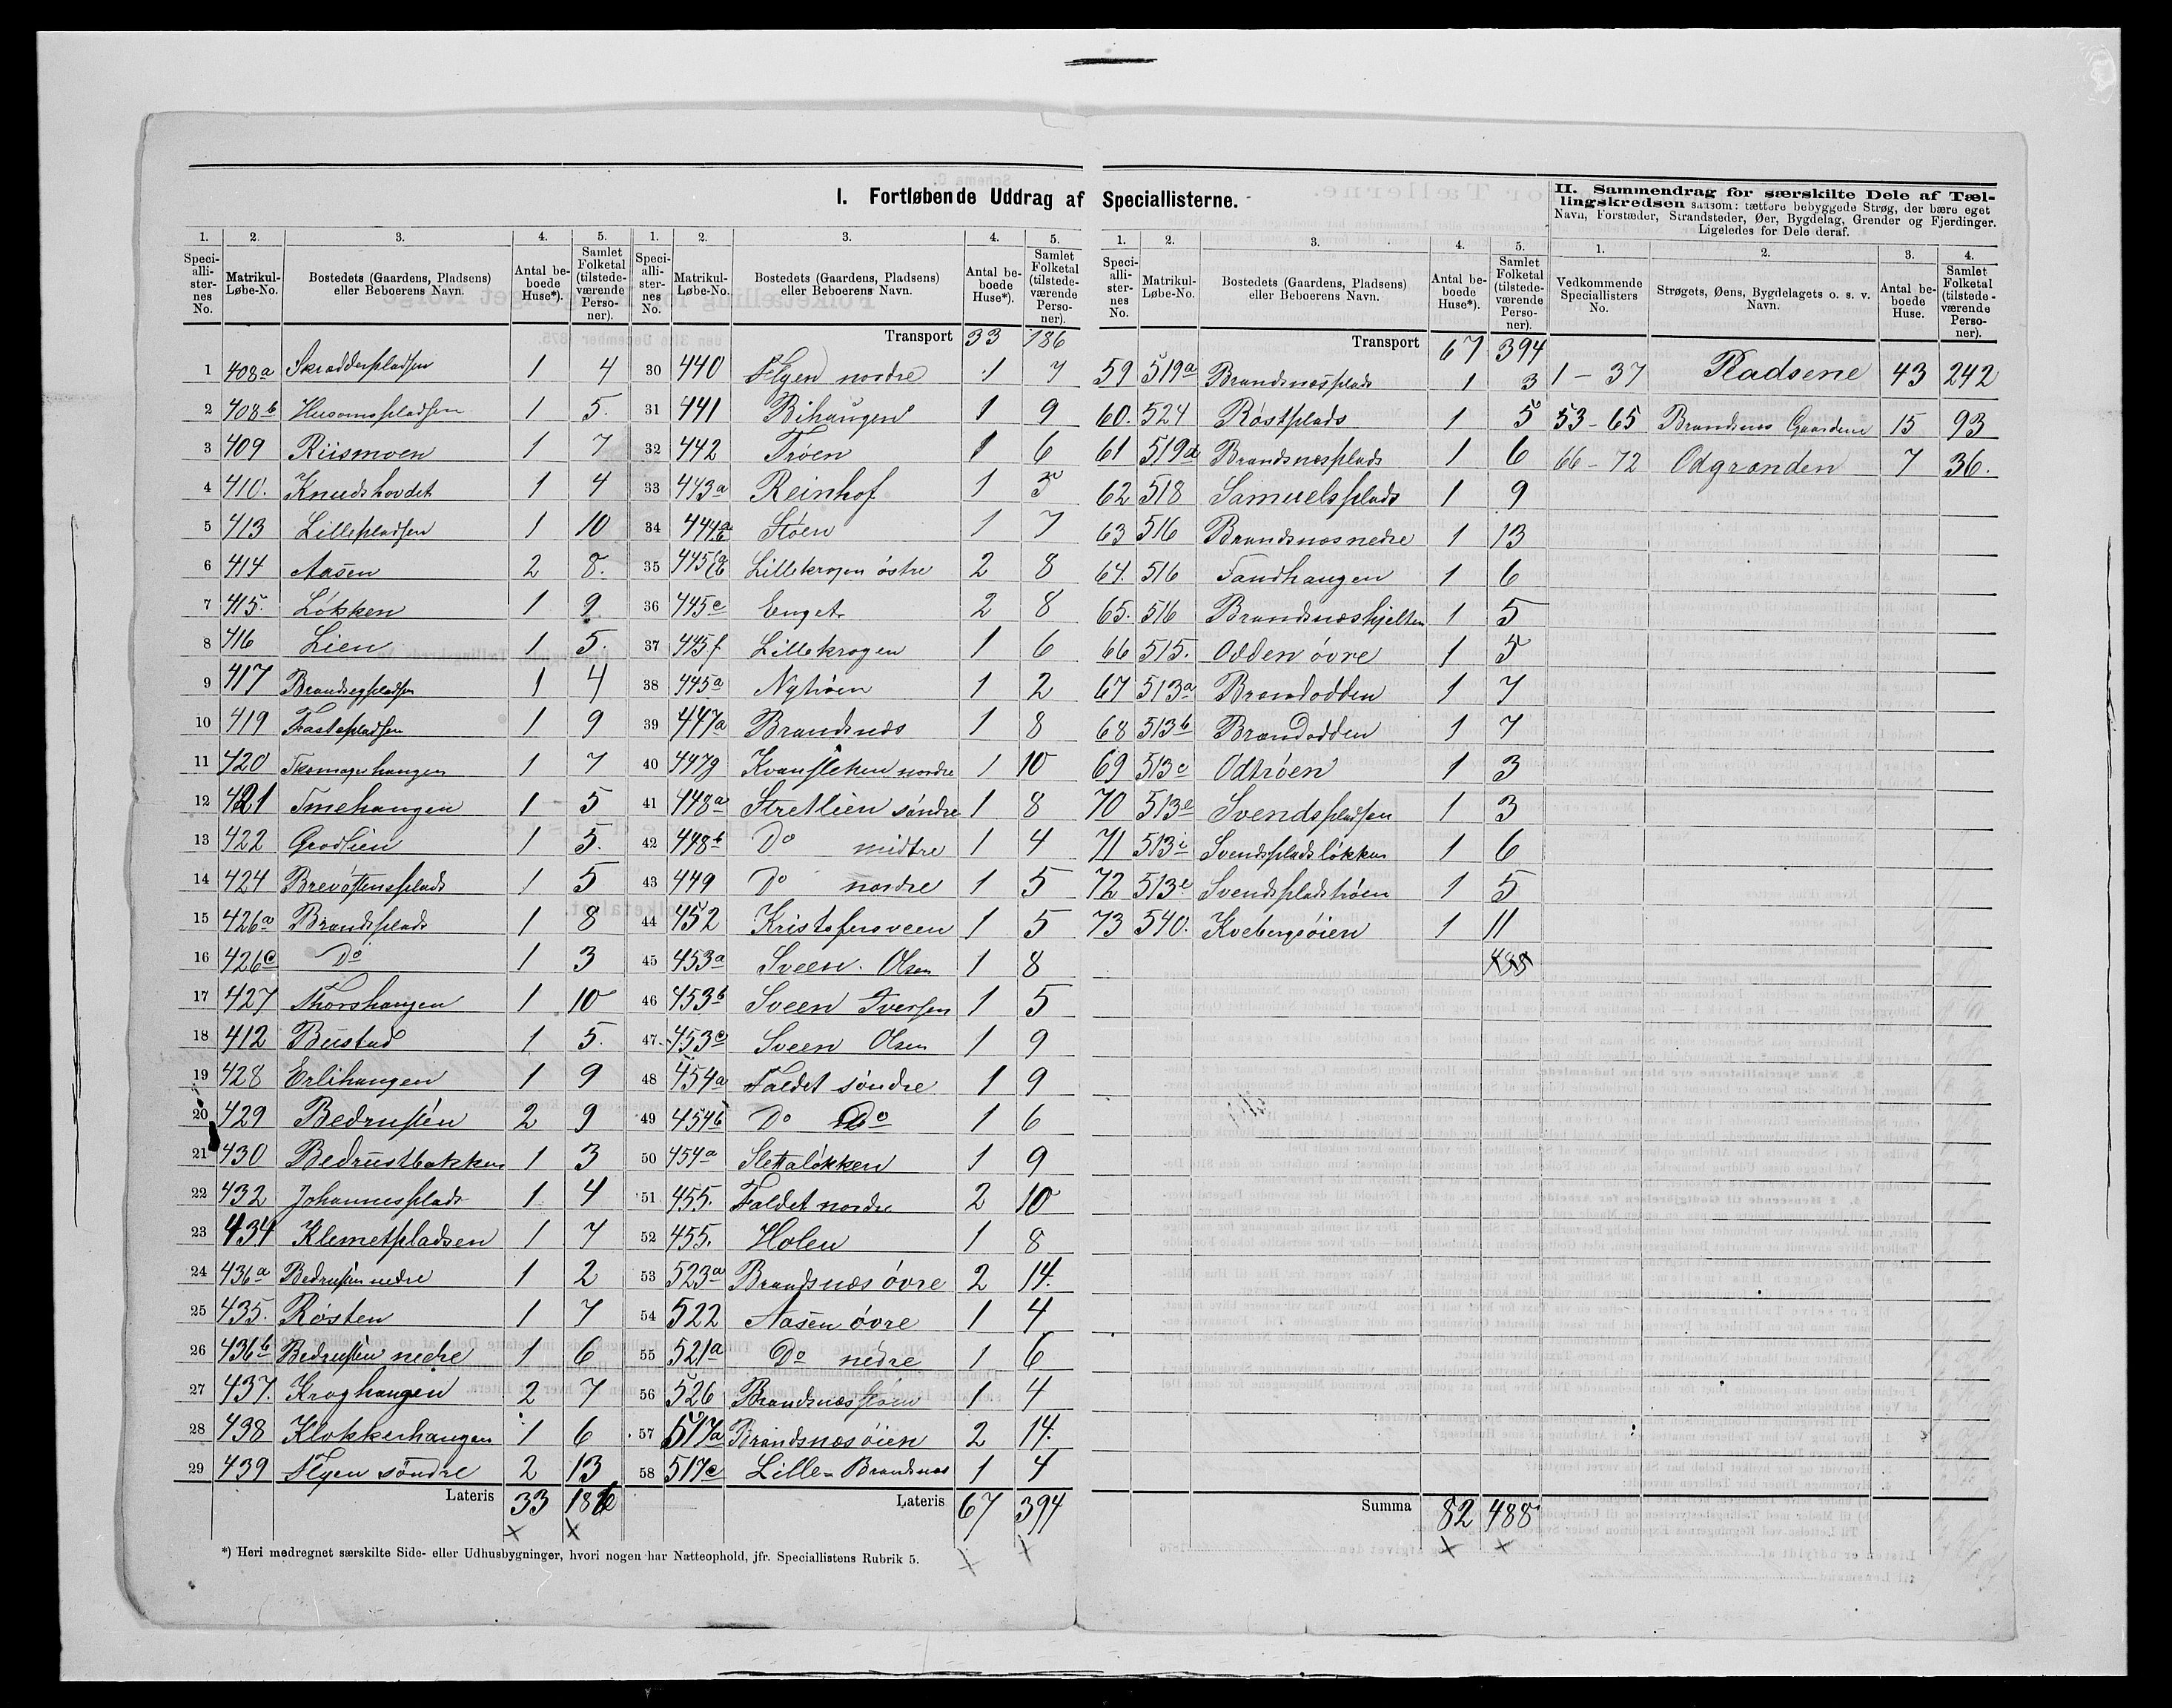 I. Fortløbende Uddrag af Speciallisterne.
1. 2. 3. 4. 5.
Speci-alli-ster-nes No. Matrikul-Løbe-No. Bostedets (Gaardens, Pladsens) eller Beboerens Navn. Antal be-boede Huse*). Samlet Folketal (tilstede-værende Perso-ner).
1 408a Skrædderpladsen 1 4
2 408b Husomspladsen 1 5.
3 409 Riismoen 1 7
4 410. Knudshovdet 1 4
5 413 Lillepladsen 1 10
6 414 Aasen 2 8.
7 415. Løkken 1 9
8 416 Lien 1 5.
9 417 1 4
10 419 1 9
11 420 Skomagerhaugen 1 7
12 421 Smehaugen 1 5
13 422 Grødlien 1 5.
14 424 1 5
15 426a Brandsplads 1 8
16 426c Do 1 3
17 427 Thorshaugen 1 10
18 412 Bustad 1 5.
19 428 Erlihaugen 1 9
20 429 Bedrusten 2 9
21 430 Bedrustbakken 1 3
22 432 Johannesplads 1 4
23 434 Klemetpladsen 1 7
24 436a Bedrusten nedre 1 2
25 435. Røsten 1 7
26 436b Bedrusten nedre 1 6
27 437. Kroghaugen 2 7
28 438 Klokkerhaugen 1 6
29 439 Flyen søndre 2 13
Lateris 33 186
*) Heri medregnet særskilte Side- eller Udhusbygninger, hvori nogen har Natteophold, jfr. Speciallistens Rubrik 5.
1. 2. 3. 4. 5.
Speci-alli-ster-nes No. Matrikul-Løbe-No. Bostedets (Gaardens, Pladsens) eller Beboerens Navn. Antal be-boede Huse*). Samlet Folketal (tilstede-værende Perso-ner).
Transport 33 186
30 440 Flyen nordre 1 7
31 441 Bihaugen 1 9
32 442 Trøen 1 6
33 443a Reinhof 1 5
34 444 Støen 1 7
35 445 Lillekrogen østre 2 8
36 445e Enget 2 8
37 445f. Lillekrogen 1 6
38 445a Nytrøen 1 2
39 447a Brandsnæs 1 8
40 447g nordre 1 10
41 448a Stretlien søndre 1 8
42 448b Do midtre 1 4
43 449 Do nordre 1 5
44 452 Kristofersveen 1 5
45 453a Sveen. Olsen 1 8
46 453b Sveen Iversen 1 5
47 453c Sveen Olsen 1 9
48 454a Faldet søndre 1 9
49 454b Do Do 1 6
50 454a Slettaløkken 1 9
51 455. Faldet nordre 2 10
52 455. Holen 1 8
53 523a Brandsnæs øvre 2 14.
54 522 Aasen øvre 1 4
55 521a Do nedre 1 6
56 526 1 4
57 517a Brandsnæsøien 2 14.
58 517c Lille=Brandnæs 1 4
Lateris 67 394
1. 2. 3. 4. 5.
Speci-alli-ster-nes No. Matrikul-Løbe-No. Bostedets (Gaardens, Pladsens) eller Beboerens Navn. Antal be-boede Huse*). Samlet Folketal (tilstede-værende Perso-ner).
Transport 67 394
59 519a Brandsnæsplads 1 3
60. 524 Røstplads 1 5
61 519d Brandsnæsplads 1 6
62 518 Samuelsplads 1 9
63 516 Brandsnæs nedre 1 13
64. 516 Sandhaugen 1 6
65. 516 Brandsnæshjelten 1 5
66 515. Odden øvre 1 5
67 513a Brandodden 1 7
68 513b Brandodden 1 7
69 513c Odtrøen 1 3
70 513e Svendspladsen 1 3
71 513i Svendspladsløkken 1 6
72 513e Svendspladstrøen 1 5
73 540. Kvebergsøien 1 11
488
Summa 82 488
II. Sammendrag for særskilte Dele af Tæl-
lingskredsen saasom: tættere bebyggede Strøg, der bære eget
Navn, Forstæder, Strandsteder, Øer, Bygdelag, Grender og Fjerdinger.
Ligeledes for Dele deraf.
1. 2. 3. 4.
Vedkommende Speciallisters No. Strøgets, Øens, Bygdelagets o. s. v. Navn. Antal be-boede Huse. Samlet Folketal (tilstede-værende Perso-ner).
1 - 37 Pladsene 43 242
53 - 65 Brandnæs Gaardene 15 93
66 - 72 Odgrænden 7 36.